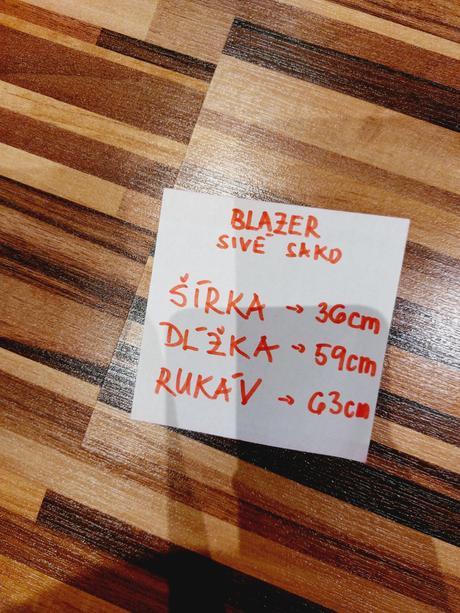 BLAZER
SIVÉ SAKO
ŠÍRKA → 36cm
DĹŽKA → 59cm
RUKÁV → 63cm